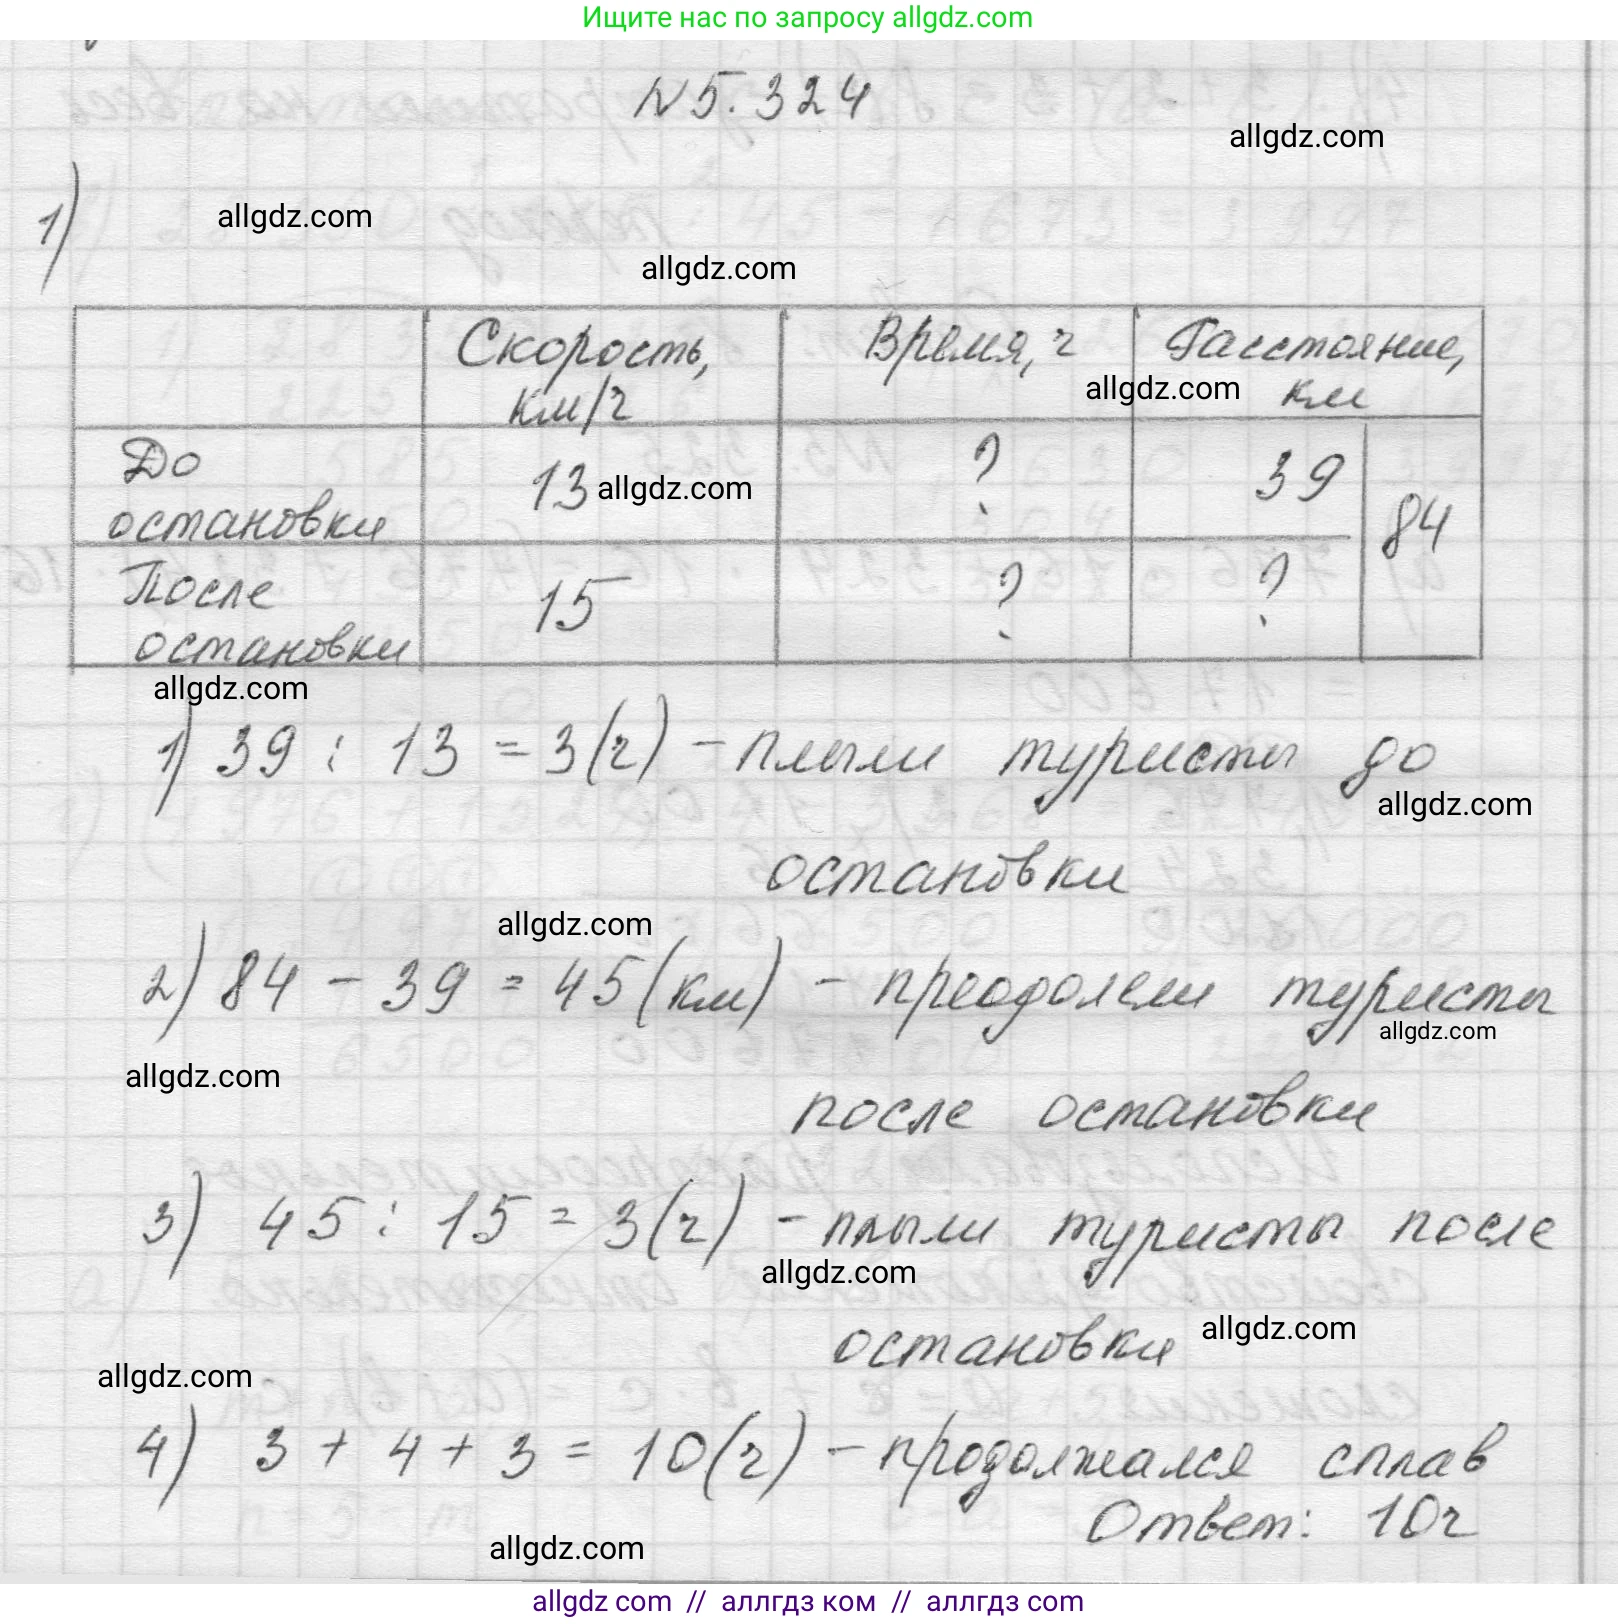 Ищите нас по запросу allgdz.com
N 5.324
allgdz.com
1)
allgdz.com
allgdz.com
Скорость, км/ч
Время, ч
Расстояние, км
allgdz.com
До остановки
13
allgdz.com
?
39
84
После остановки
15
?
?
allgdz.com
1) 39 : 13 = 3(ч) – плыли туристы до
allgdz.com
остановки
allgdz.com
2) 84 – 39 = 45(км) – преодолели туристы
allgdz.com
allgdz.com
после остановки
3) 45 : 15 = 3(ч) – плыли туристы после
allgdz.com
остановки
allgdz.com
allgdz.com
4) 3 + 4 + 3 = 10(ч) – продолжался сплав
Ответ: 10ч
allgdz.com
allgdz.com // аллгдз ком // allgdz.com